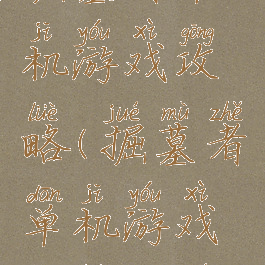 jī yóu xì gōng
机游戏攻
lüè jué mù zhě
略(掘墓者
dān jī yóu xì
单机游戏